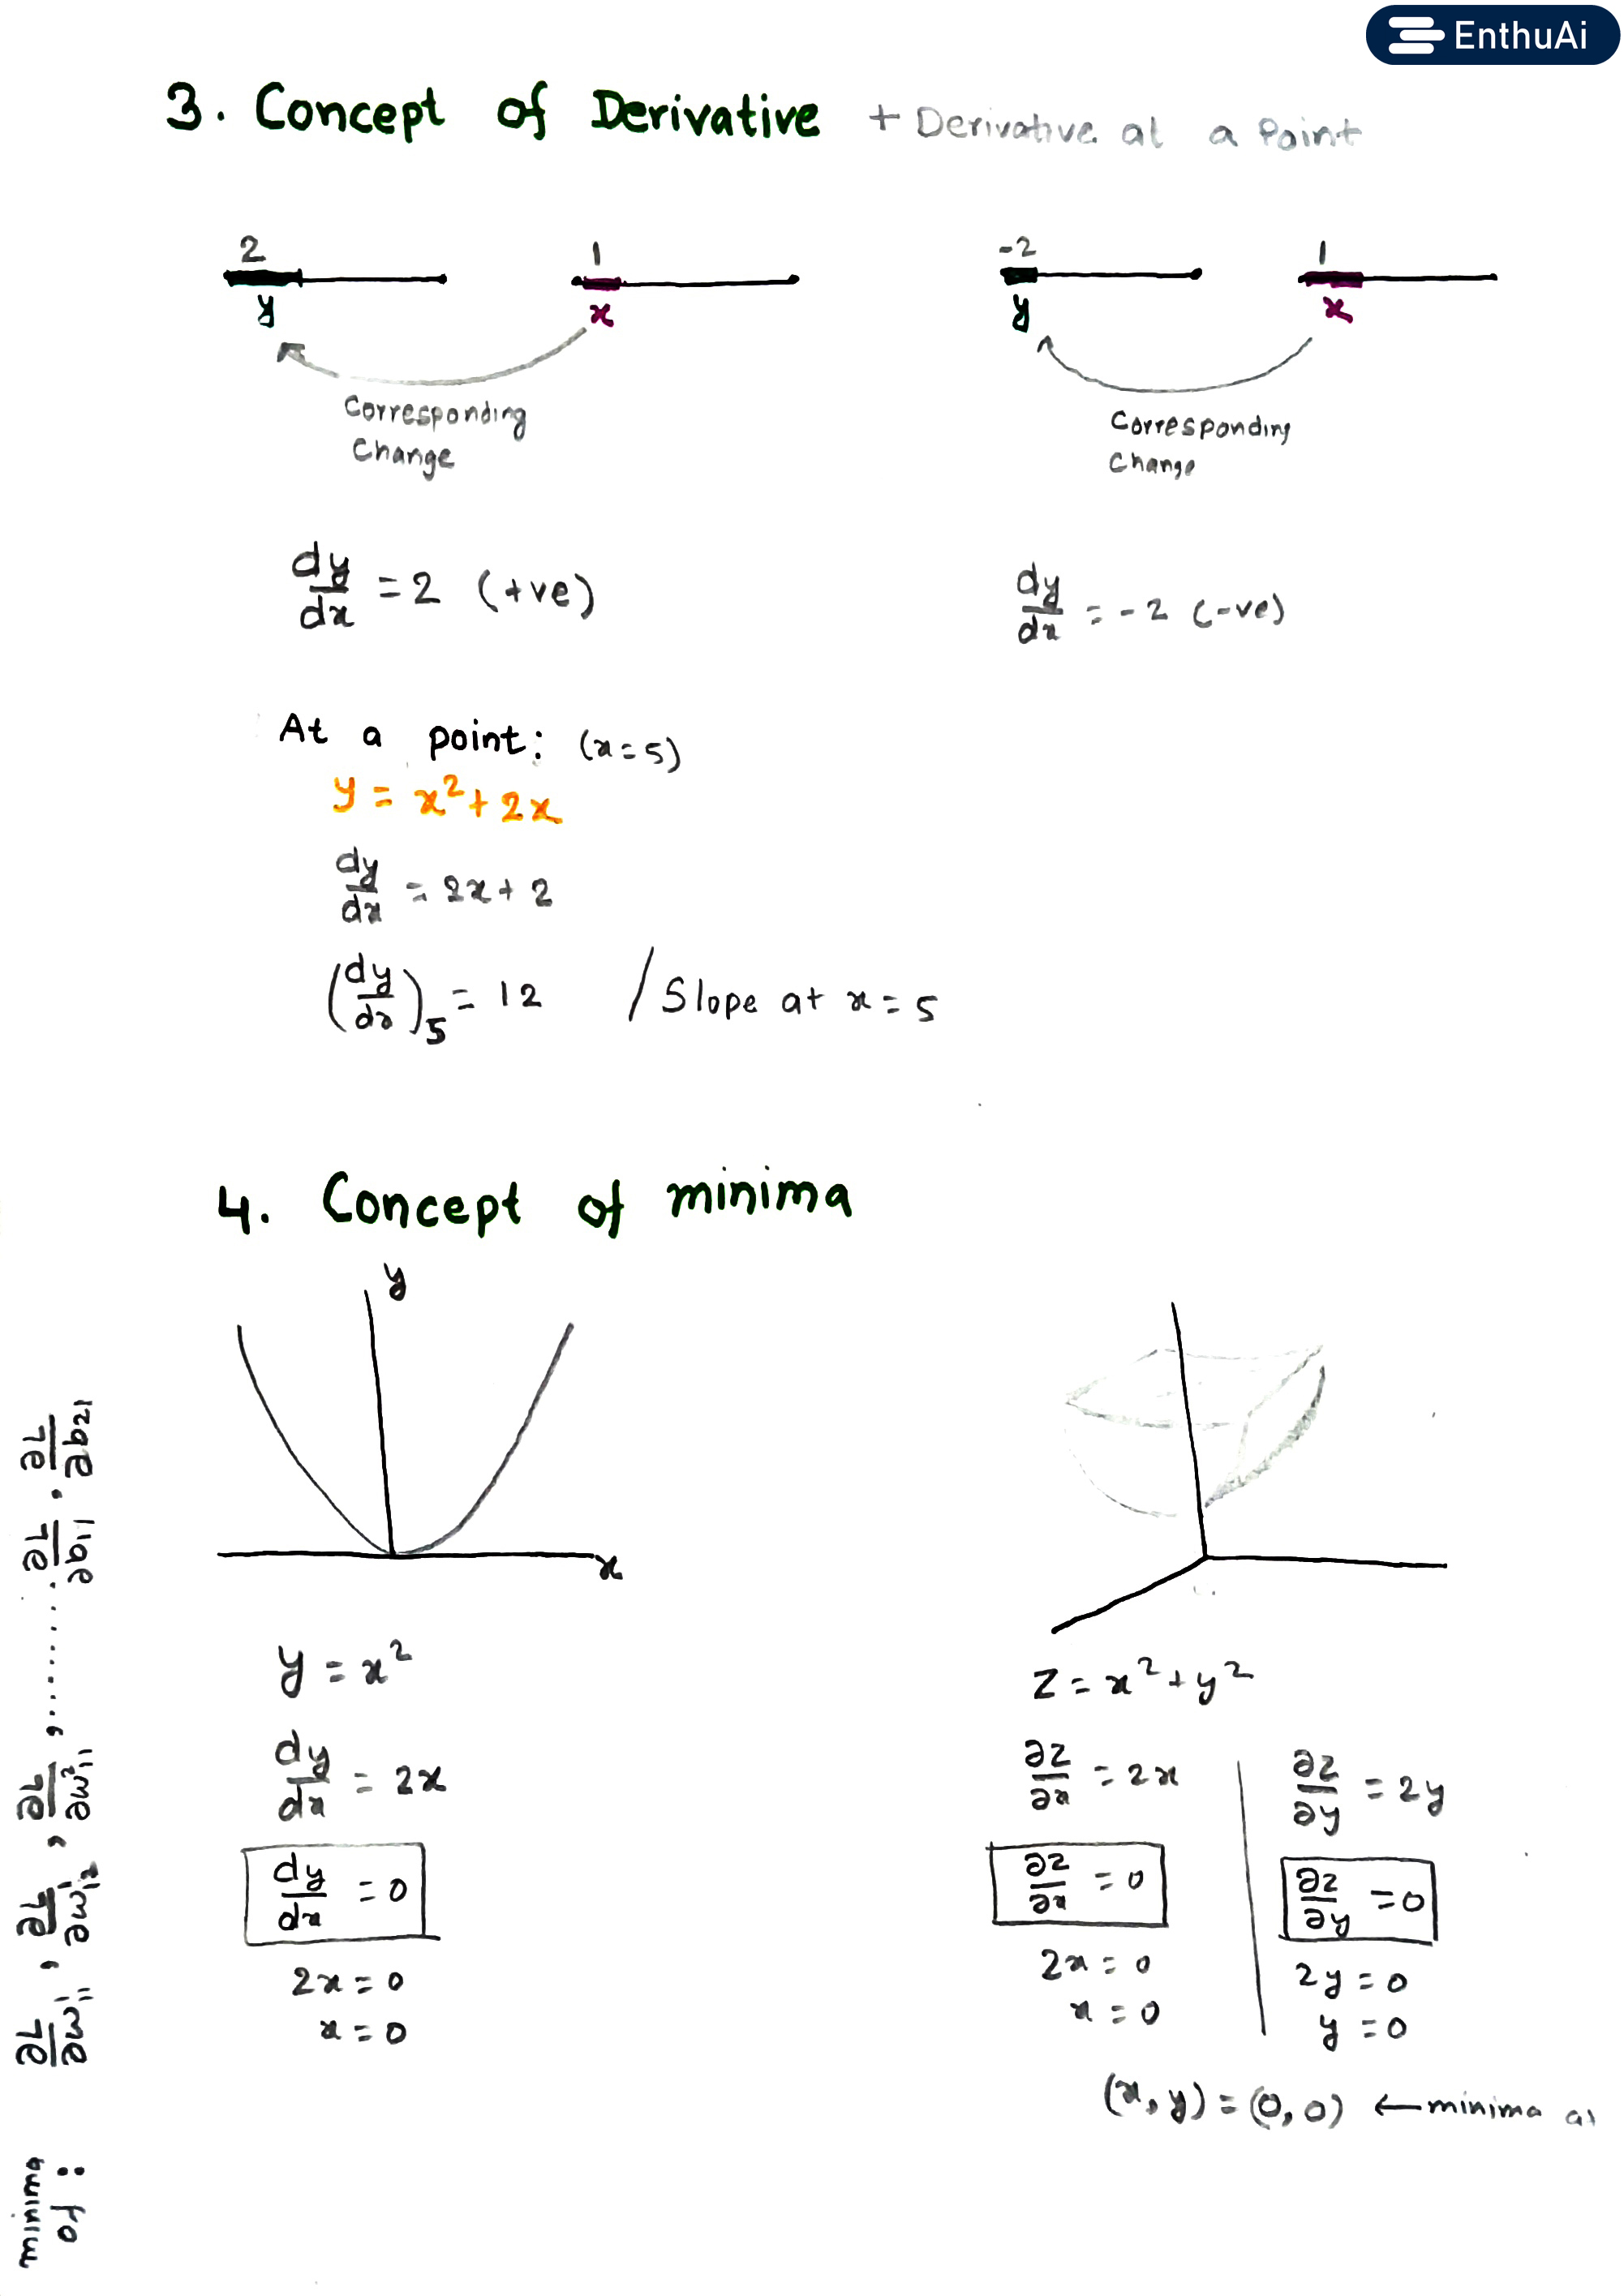 EnthuAi
3. Concept of Derivative + Derivative at a Point
2 1 -2 1
y x y x
Corresponding Change
Corresponding Change
dy/dx = 2 (+ve)
dy/dx = -2 (-ve)
At a point: (x=5)
y = x²+2x
dy/dx = 2x+2
(dy/dx)₅ = 12 / Slope at x=5
4. Concept of minima
y
x
y = x²
dy/dx = 2x
dy/dx = 0
2x=0
x=0
z = x²+y²
∂z/∂x = 2x
∂z/∂x = 0
2x=0
x=0
∂z/∂y = 2y
∂z/∂y = 0
2y=0
y=0
(x,y) = (0,0) ← minima at
minima of : ∂L/∂w¹₁₁, ∂L/∂w¹₁₂, ∂L/∂w²₁₁, ......... ∂L/∂b₁₁, ∂L/∂b₂₁